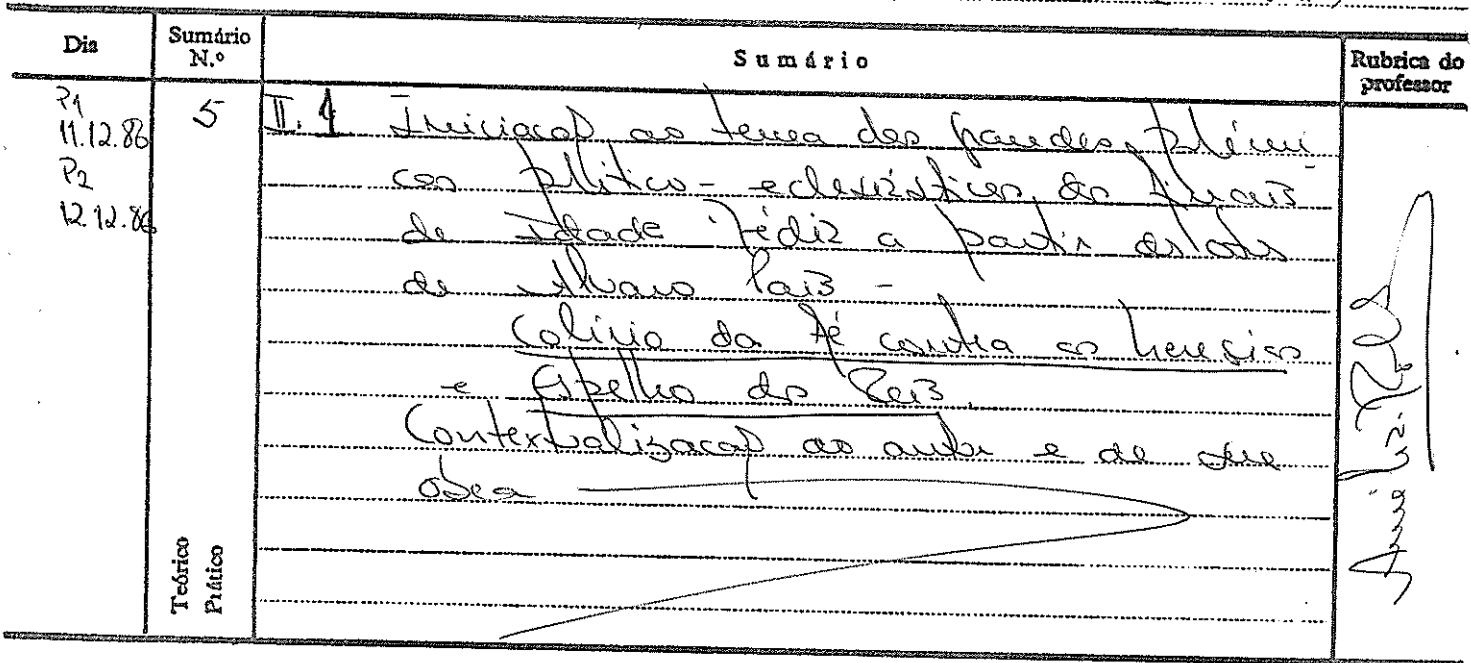 Dia
Sumário N.º
Sumário
Rubrica do professor
P1
11.12.86
P2
12.12.86
5
II.1 Iniciação ao tema das grandes polémi-
cas político-eclesiásticas dos finais
da Idade Média a partir das obras
de Álvaro Pais -
Colírio da Fé contra as heresias
e Espelho dos Reis.
Contextualização do autor e da sua
obra
Teórico
Prático